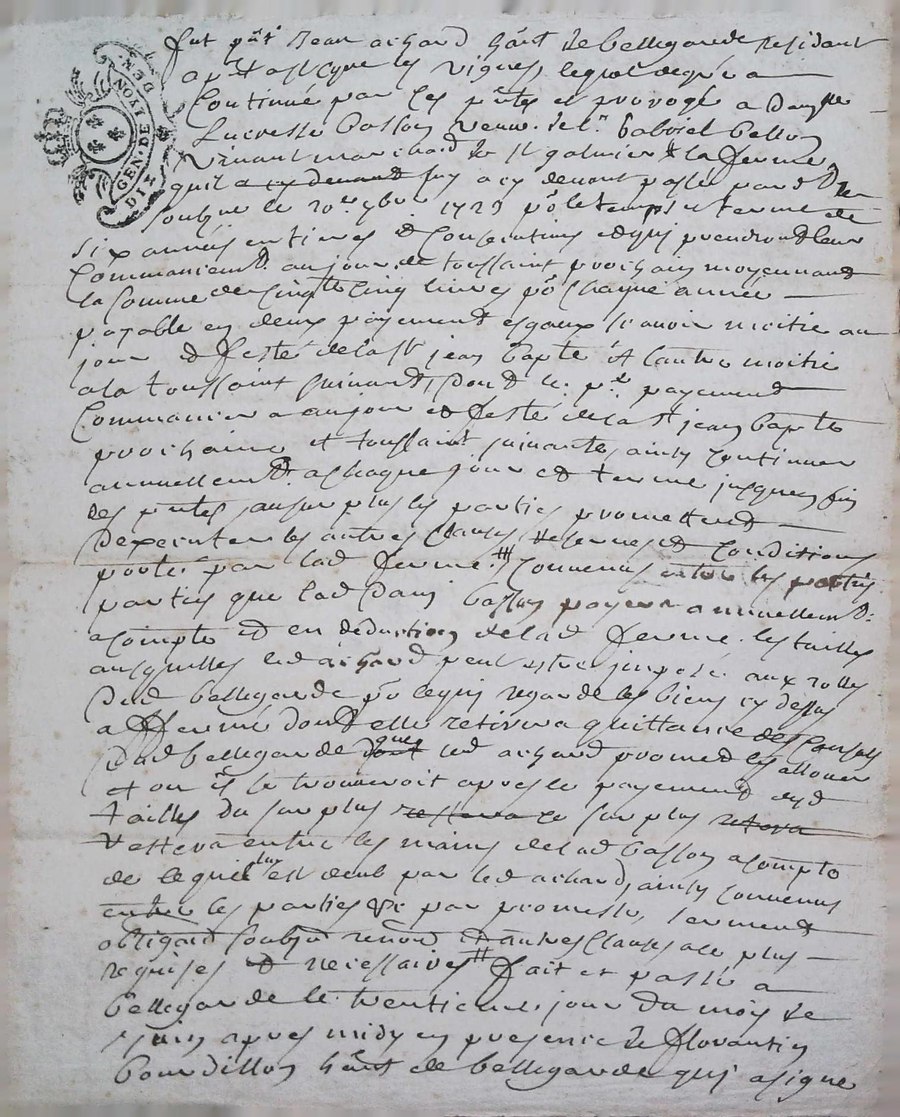 GEN. DE LYON
DEN.
fut p̃nt Jean achard h̃ant de bellegarde residant
a
Continué par les p̃ntes et prorogé a Dam.lle
Lucresse basson veuve de S.r Gabriel bellon
vivant marchand de S.t galmier la ferme
qu'il a cy devant luy a cy devant passée pard.t No.re
soubs.né le 20.e 9bre 1729 p.r le temps et terme de
six années entieres et consecutives et qui prendront leur
Commancem.t au jour de toussaint prochain moyennant
la somme de cinq.te cinq livres p.r chaque année
payable en deux payement esgaux scavoir moitié au
jour et feste de la S.t jean bap.te et l'autre moitié
a la toussaint suivant, dont le p.r payement
Commancera au jour et feste de la S.t jean bap.te
prochaine et toussaint suivante, ainsy continuer
annuellem.t a chaque jour et terme jusques fin
des p̃ntes, au surplus les parties promettent
d'executer les autres clauses reserves et conditions
portés par lad ferme # Convenus entre les parties
parties que lad Dam.lle basson payera annuellem.t
a compte et en deduction de lad ferme les tailles
ausquelles led achard peut estre imposé aux rolles
dud bellegarde p.r ce qui regarde les biens cy dessus
affermé dont elle retirera quittance des consuls
dud bellegarde dont que led achard promet les allouer
et ou il se trouveroit apres le payement desd
tailles du surplus restera ce surplus retera
restera entre les mains de lad basson a compte
de ce qui luy est deub par led achard, ainsy convenus
entre les parties &c par promesse, serment
obligaõn soubs.on renon.on et autres clauses a ce plus
requises et necessaires # fait et passé a
bellegarde le trentieme jour du mois de
juin apres midy en presence de florantin
bourdillon h̃ant de bellegarde qui a signé